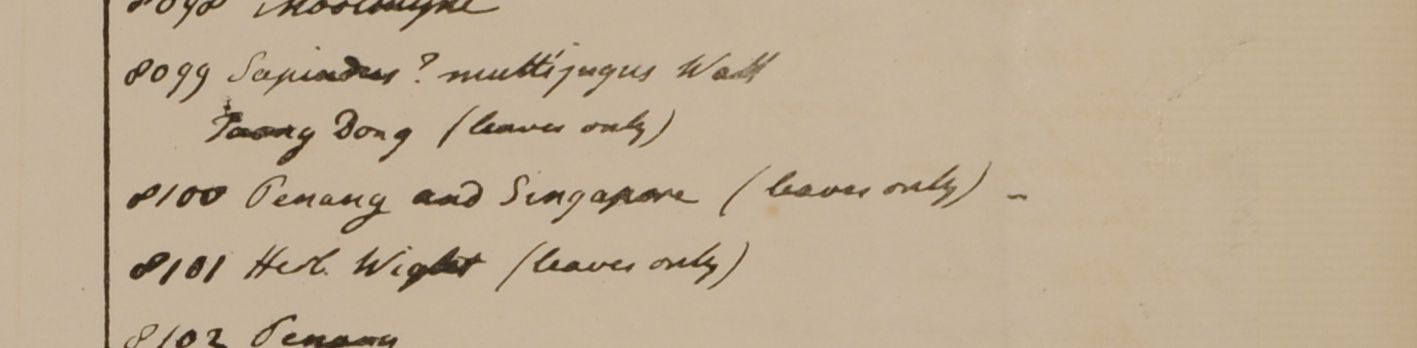 8098 Moolmyne
8099 Sapindus ? multijugus Wall
Taong Dong (leaves only)
8100 Penang and Singapore (leaves only) -
8101 Herb. Wight (leaves only)
8102 Penang